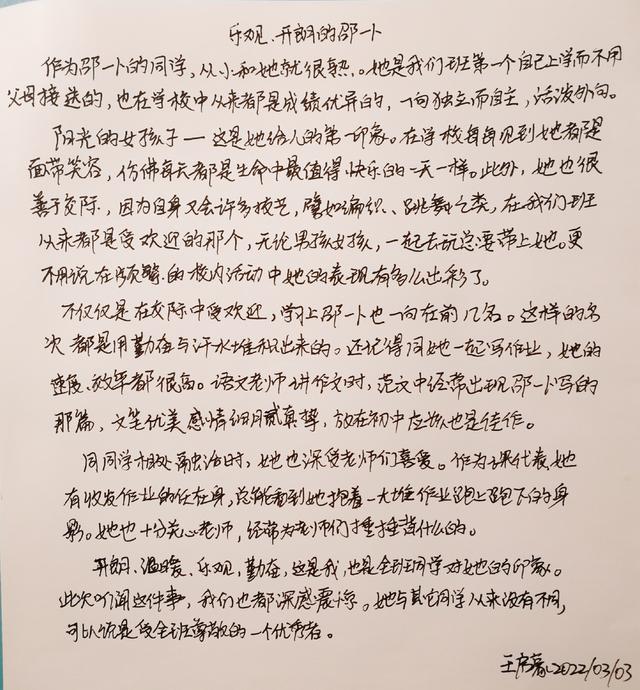 乐观、开朗的邵一卜
作为邵一卜的同学，从小和她就很熟。她是我们班第一个自己上学而不用
父母接送的，也在学校中从来都是成绩优异的，一向独立而自主，活泼外向。
阳光的女孩子——这是她给人的第一印象。在学校每每见到她都是
面带笑容，仿佛每天都是生命中最值得快乐的一天一样。此外，她也很
善于交际，因为自身又会许多技艺，譬如编织、跳舞之类，在我们班
从来都是受欢迎的那个，无论男孩女孩，一起去玩总要带上她。更
不用说在频繁的校内活动中她的表现有多么出彩了。
不仅仅是在交际中受欢迎，学习上邵一卜也一向在前几名。这样的名
次都是用勤奋与汗水堆积出来的。还记得同她一起写作业，她的
速度、效率都很高。语文老师讲作文时，范文中经常出现邵一卜写的
那篇，文笔优美感情细腻真挚，放在初中应该也是佳作。
同同学相处融洽时，她也深受老师们喜爱。作为课代表她
有收发作业的任在身，总能看到她抱着一大堆作业跑上跑下的身
影。她也十分关心老师，经常为老师们捶捶背什么的。
开朗、温暖、乐观，勤奋，这是我，也是全班同学对她的印象。
此次听闻这件事，我们也都深感震惊。她与其它同学从来没有不同，
可以说是受全班尊敬的一个优秀者。
2022/03/03